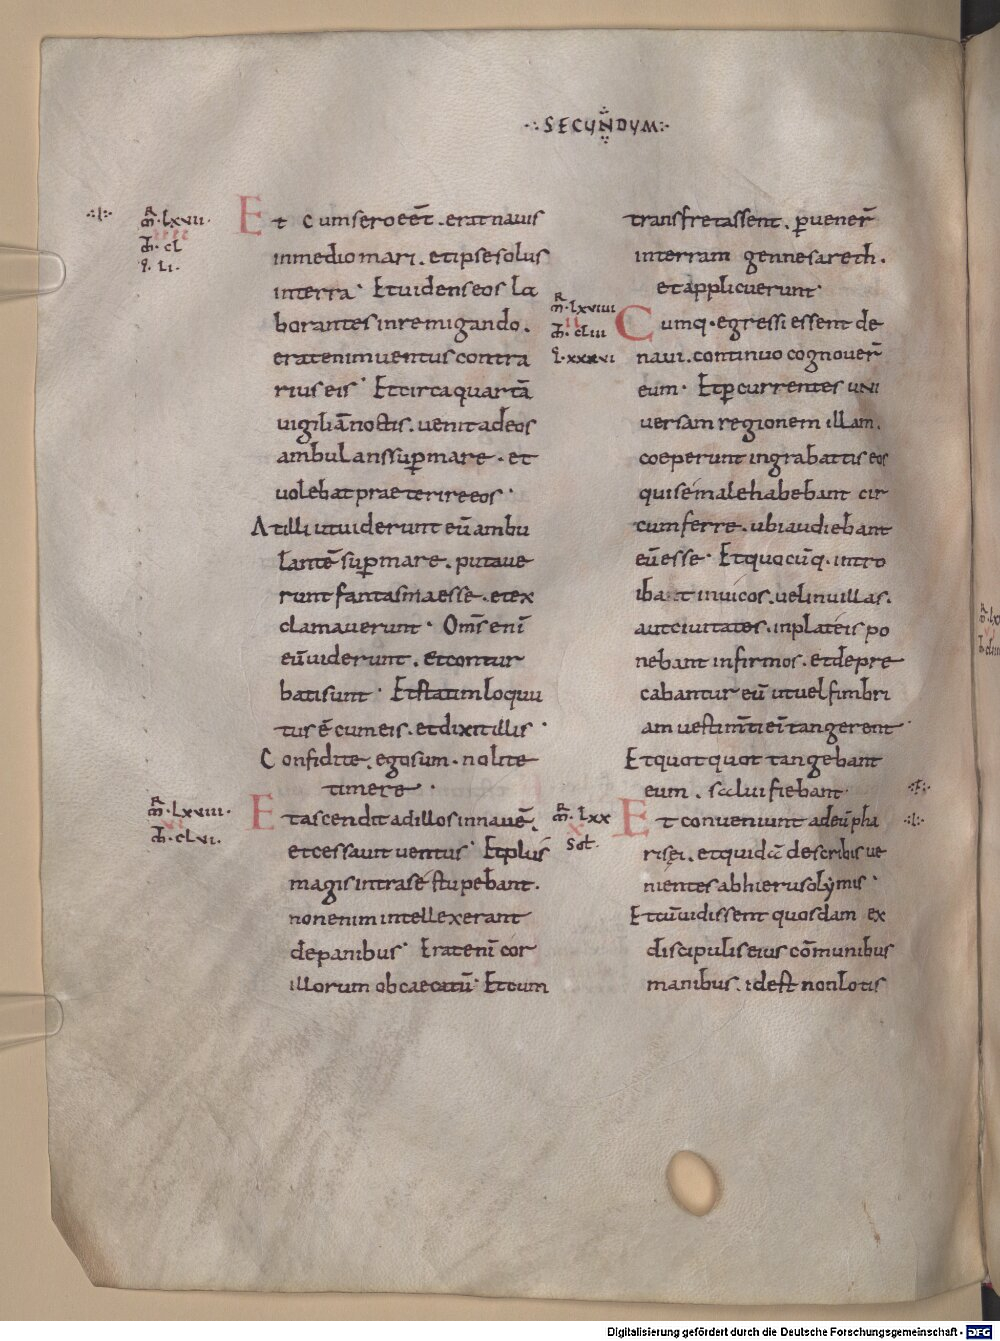 ·:· SECUNDUM ·:·
·:l:·
M̄R · LXVII ·
M̄T · CL
I · LI ·
Et cum sero eēt . erat nauis
in medio mari . et ipse solus
in terra · Et uidens eos la
borantes in remigando .
erat enim uentus contra
rius eis · Et circa quartā
uigiliā noctis . uenit ad eos
ambulans sup̄ mare . et
uolebat praeterire eos ·
At illi ut uiderunt eū ambu
lantē sup̄ mare . putaue
runt fantasma esse . et ex
clamauerunt · Om̄s enī
eū uiderunt . et contur
bati sunt · Et statim loquu
tus ē cum eis . et dixit illis ·
Confidite . ego sum . nolite
timere ·
M̄R · LXVIII ·
VI
M̄T · CLVI ·
Et ascendit ad illos in nauē .
et cessauit uentus · Et plus
magis intra se stupebant .
non enim intellexerant
de panibus · Erat enī cor
illorum obcaecatū · Et cum
transfretassent . p̄uener̄
in terram gennesareth .
et applicuerunt ·
M̄R · LXVIIII
II
M̄T · CLIII
L · XXXVI
Cumq · egressi essent de
naui . continuo cognouer̄
eum · Et p̄currentes uni
uersam regionem illam .
coeperunt in grabattis eos
qui se male habebant cir
cumferre . ubi audiebant
eū esse · Et quocūq · intro
ibant in uicos . uel in uillas .
aut ciuitates . in plateis po
nebant infirmos . et depre
cabantur eū ut uel fimbri
am uestim̄ti eī tangerent ·
Et quot quot tangebant
eum . salui fiebant ·
·:F:·
M̄R · LXX
X
Sol .
·:l:·
Et conueniunt ad eū pha
risei . et quidā de scribis ue
nientes ab hierusolymis ·
Et cū uidissent quosdam ex
discipulis eius cōmunibus
manibus . id est non lotis
Digitalisierung gefördert durch die Deutsche Forschungsgemeinschaft - DFG